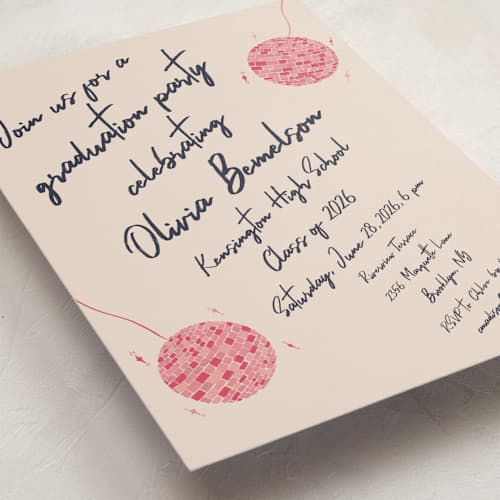 Join us for a
graduation party
celebrating
Olivia Bemelson
Kensington High School
Class of 2026
Saturday, June 28, 2026, 6 pm
Riverview Terrace
2356 Marquette Lane
Brooklyn, NY
RSVP to Chloe